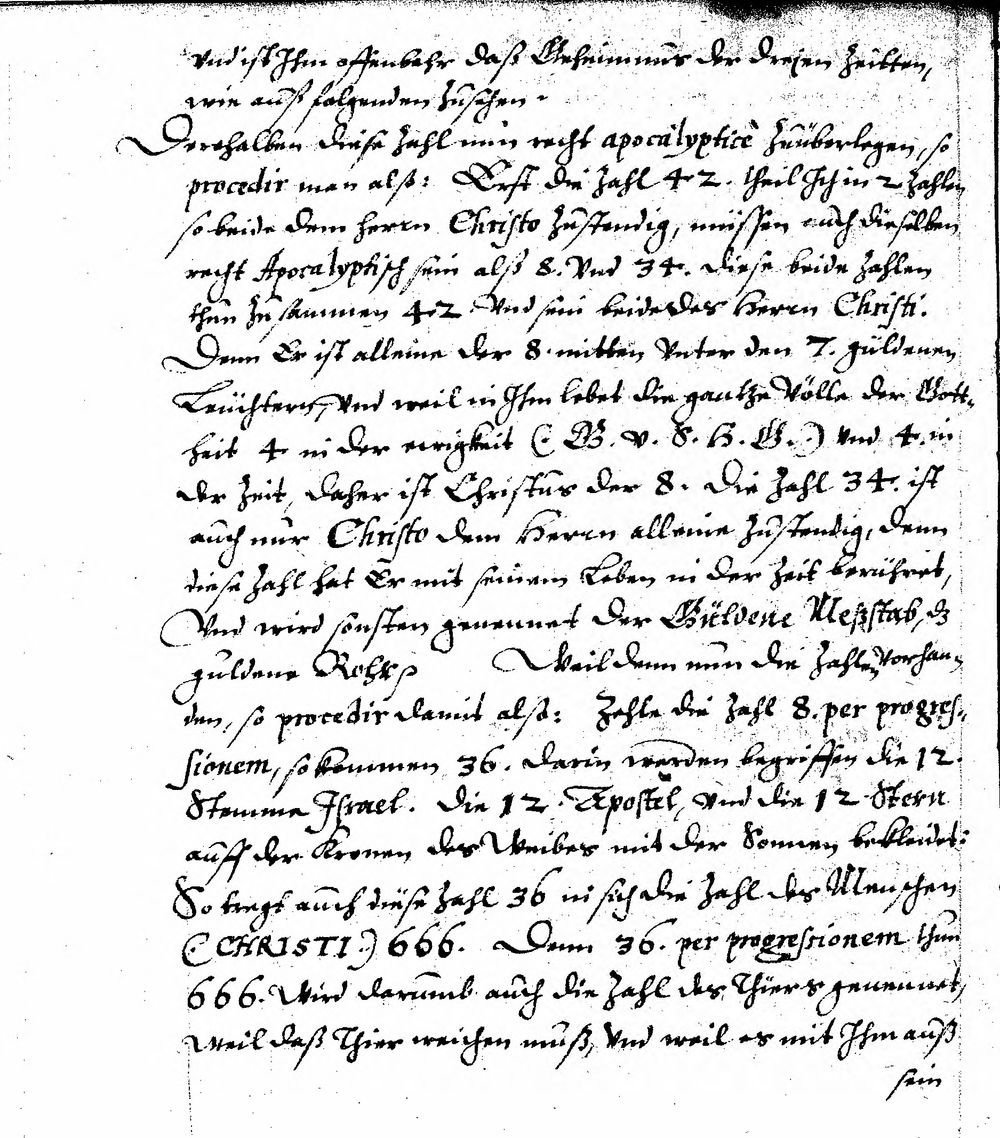 Vnd ist Ihm offenbahr daß Geheimnus der dreÿen Zeitten,
wie auß folgenden Zusehen.
Derohalben diese Zahl nun recht apocalypticè Zuüberlegen, so
procedir man alß: Erst die Zahl 42. theil Ich in 2 Zahlen
so beide dem Herrn Christo Zustendig, müssen auch dieselben
recht Apocalyptisch sein alß 8. Vnd 34. diese beide Zahlen
thun Zusammen 42 Vnd sein beide des Herrn Christi.
Denn Er ist alleine der 8. mitten Vnter den 7. güldenen
Leüchtern, Vnd weil in Ihm lebet die gantze Völle der Gott-
heit 4 in der ewigkeit (: G. V. S. H. G. :) Vnd 4. in
der Zeit, daher ist Christus der 8. die Zahl 34. ist
auch nur Christo dem Herrn alleine Zustendig, denn
diese Zahl hat Er mit seinem Leben in der Zeit berühret,
Vnd wird sonsten genennet der Güldene Meßstab, dz
guldene Rohr Weil denn nun die Zahlen Vorhan-
den, so procedir damit alß: Zehle die Zahl 8. per progres-
sionem, so kommen 36. darin werden begriffen die 12.
Stemme Israel. die 12. Apostel, Vnd die 12 Stern
auff der Kronen des Weibes mit der Sonnen bekleidet:
So tregt auch diese Zahl 36 in sich die Zahl des Menschen
(: CHRISTI :) 666. Denn 36. per progressionem thun
666. Wird darumb auch die Zahl des Thiers genennet,
Weil daß Thier weichen muß, Vnd weil es mit Ihm auß
sein